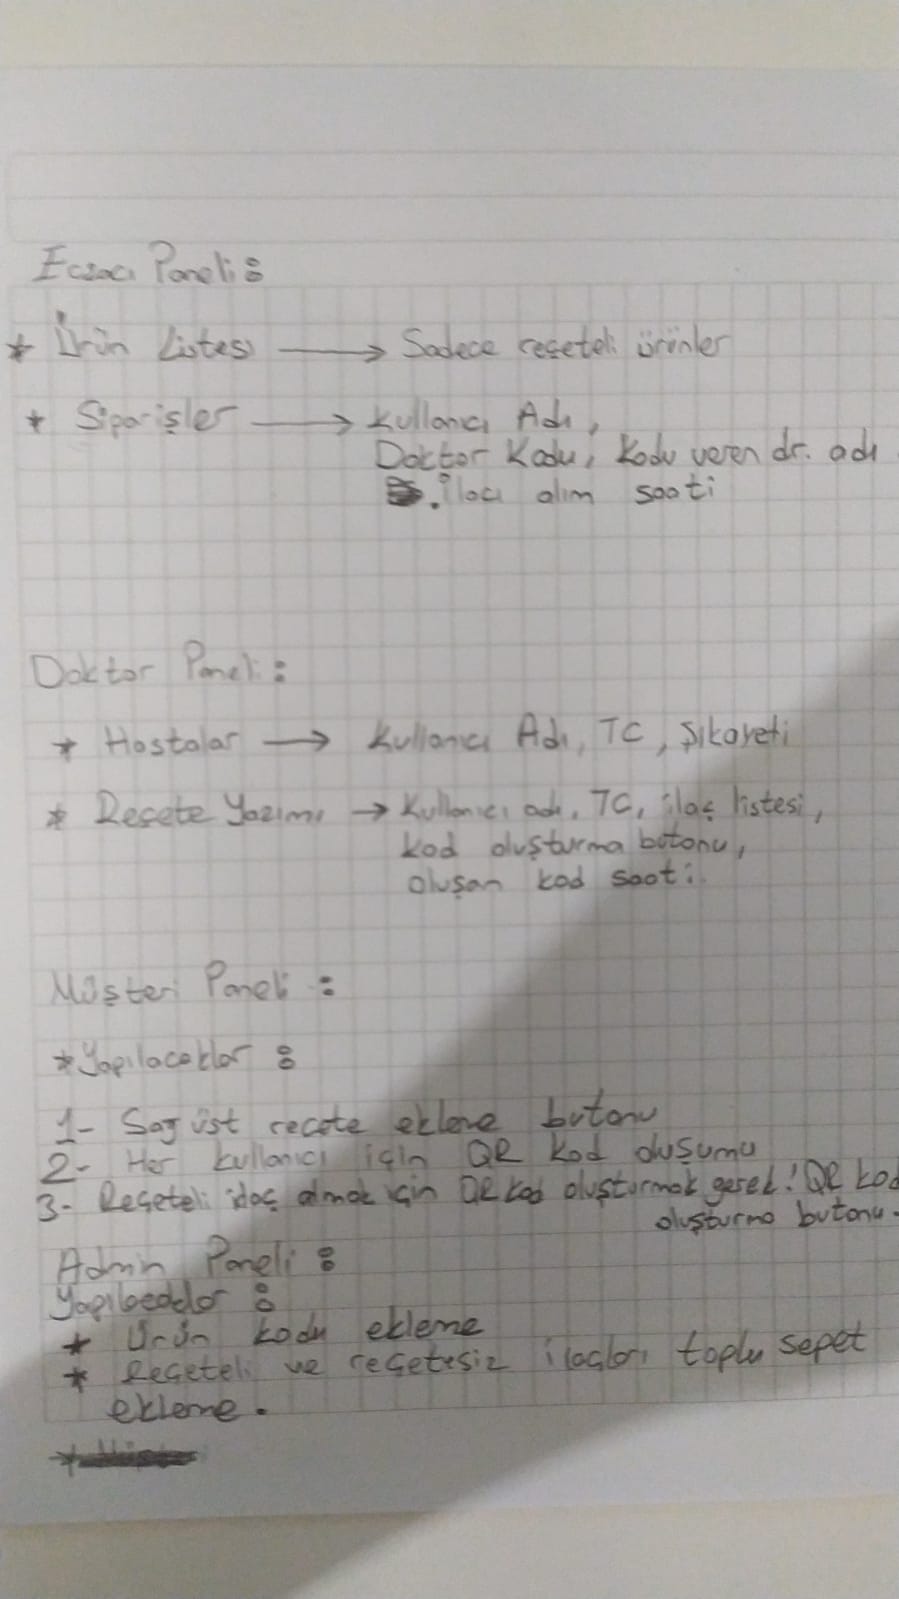 Eczacı Paneli:
* Ürün Listesi → Sadece reçeteli ürünler
* Siparişler → Kullanıcı Adı,
Doktor Kodu, Kodu veren dr. adı
. ilacı alım saati
Doktor Paneli:
* Hastalar → Kullanıcı Adı, TC, Şikayeti
* Reçete Yazımı → Kullanıcı adı, TC, ilaç listesi,
kod oluşturma butonu,
oluşan kod saati.
Müşteri Paneli:
*Yapılacaklar:
1- Sağ üst recete ekleme butonu
2- Her kullanıcı için QR kod oluşumu
3- Reçeteli ilaç almak için QR kod oluşturmak gerek! QR kod
oluşturma butonu.
Admin Paneli:
Yapılacaklar:
* Ürün kodu ekleme
* Reçeteli ve reçetesiz ilaçları toplu sepet
ekleme.